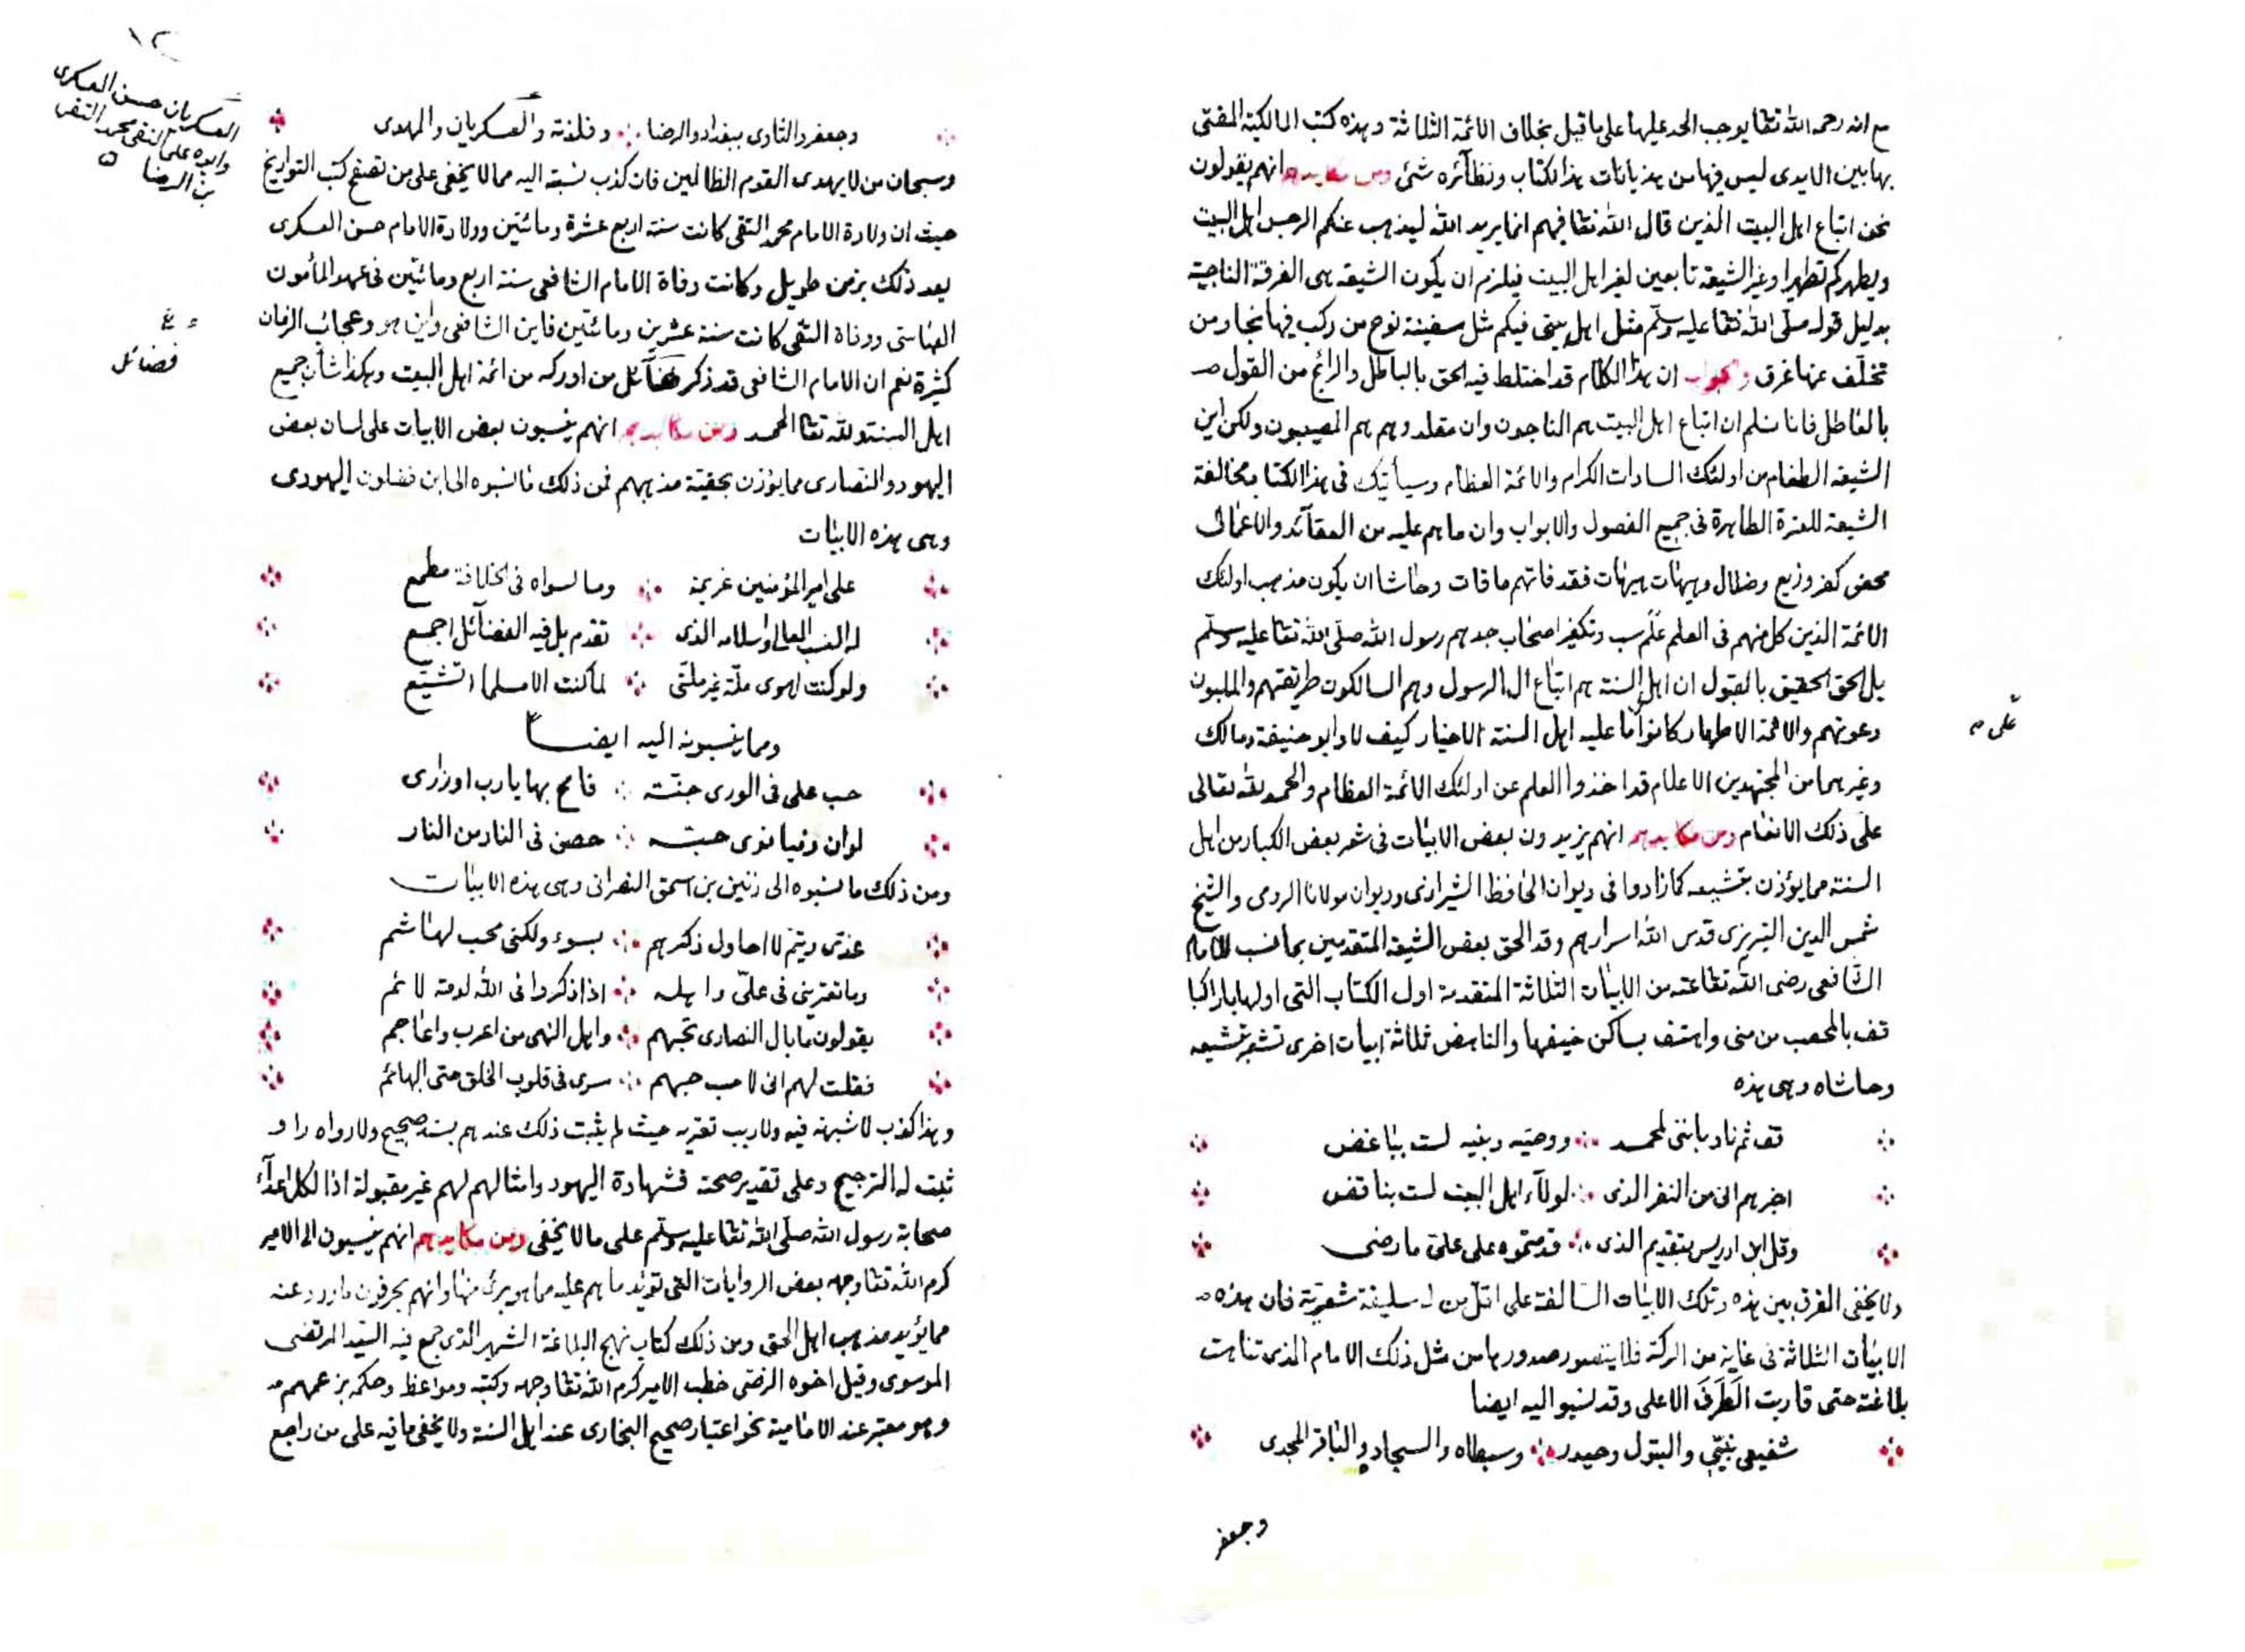 مع انه رحمه الله تعا يوجب الحد عليها على ما قيل بخلاف الائمة الثلاثة وهذه كتب المالكية المفتى
بها بين الايدى ليس فيها من هذيانات هذا الكتاب ونظآئره شئ ومن مكايدهم انهم يقولون
نحن اتباع اهل البيت الذين قال الله تعا فيهم انما يريد الله ليذهب عنكم الرجس اهل البيت
ويطهركم تطهيرا وغير الشيعة تابعين لغير اهل البيت فيلزم ان يكون الشيعة هى الفرقة الناجية
بدليل قوله صلى الله تعا عليه وسلم مثل اهل بيتى فيكم مثل سفينة نوح من ركب فيها نجا ومن
تخلف عنها غرق والجواب ان هذا الكلام قد اختلط فيه الحق بالباطل والرائج من القول
بالعاطل فانا نسلم ان اتباع اهل البيت هم الناجون وان مقلدوهم هم المصيبون ولكن اين
الشيعة الطغام من اولئك السادات الكرام والائمة العظام وسيأتيك فى هذا الكتاب مخالفة
الشيعة للعترة الطاهرة فى جميع الفصول والابواب وان ما هم عليه من العقآئد والاعمال
محض كفر وزيغ وضلال وهيهات هيهات فقد فاتهم ما فات وحاشا ان يكون مذهب اولئك
الائمة الذين كل منهم فى العلم علم سب وتكفير اصحاب جدهم رسول الله صلى الله تعا عليه وسلم
بل الحق الحقيق بالقول ان اهل السنة هم اتباع ال الرسول وهم السالكون طريقتهم والملبون
دعوتهم والائمة الاطهار كانوا ما عليه اهل السنة الاخيار كيف لا وابو حنيفة ومالك
على
وغيرهما من المجتهدين الاعلام قد اخذوا العلم عن اولئك الائمة العظام والحمد لله تعالى
على ذلك الانعام ومن مكايدهم انهم يزيدون بعض الابيات فى شعر بعض الكبار من اهل
السنة مما يؤذن بتشيعه كما زادوا فى ديوان الحافظ الشيرازى وديوان مولانا الرومى والشيخ
شمس الدين التبريزى قدس الله اسرارهم وقد الحق بعض الشيعة المتقدمين بما نسب للامام
الشافعى رضى الله تعا عنه من الابيات الثلاثة المتقدمة اول الكتاب التى اولها يا راكبا
قف بالمحصب من منى واهتف بساكن خيفها والناهض ثلاثة ابيات اخرى تشعر بتشيعه
وحاشاه وهى هذه
قف ثم ناد باننى لمحمد ووصيه وبنيه لست بباغض
اخبرهم انى من النفر الذى لولآء اهل البيت لست بناقض
وقل ابن ادريس بتقديم الذى قدمتموه على على ما رضى
ولا يخفى الفرق بين هذه وتلك الابيات السالفة على اقل من له سليقة شعرية فان هذه
الابيات الثلاثة فى غاية من الركة فلا يتصور صدورها من مثل ذلك الامام الذى تناهت
بلاغته حتى قاربت الطرف الاعلى وقد نسبوا اليه ايضا
شفيعى نبيى والبتول وحيدر وسبطاه والسجاد والباقر المجدى
وجعفر
١٢
وجعفر والثاوى ببغداد والرضا وفلذته والعسكريان والمهدى
العسكريان حسن العسكرى
وابوه على النقى محمد التقى
بن الرضا
وسبحان من لا يهدى القوم الظالمين فان كذب نسبته اليه مما لا يخفى على من تصفح كتب التواريخ
حيث ان ولادة الامام محمد التقى كانت سنة اربع عشرة ومائتين وولادة الامام حسن العسكرى
بعد ذلك بزمن طويل وكانت وفاة الامام الشافعى سنة اربع ومائتين فى عهد المأمون
العباسى ووفاة التقى كانت سنة عشرين ومائتين فاين الشافعى واين هو وعجائب الزمان
كثيرة نعم ان الامام الشافعى قد ذكر فضآئل من ادركه من ائمة اهل البيت وهكذا شأن جميع
فضائل
اهل السنة ولله تعا الحمد ومن مكايدهم انهم ينسبون بعض الابيات على لسان بعض
اليهود والنصارى مما يؤذن بحقية مذهبهم فمن ذلك ما نسبوه الى ابن فضلون اليهودى
وهى هذه الابيات
على امير المؤمنين عزيمة وما لسواه فى الخلافة مطمع
له النسب العالى واسلامه الذى تقدم بل فيه الفضآئل اجمع
ولو كنت اهوى ملة غير ملتى لما كنت الا مسلما اتشيع
ومما ينسبونه اليه ايضا
حب على فى الورى جنة فامح بها يا رب اوزارى
لو ان ذميا نوى حبه حصن فى النار من النار
ومن ذلك ما نسبوه الى زنين بن اسحق النصرانى وهى هذه الابيات
عدى وتيم لا احاول ذكرهم بسوء ولكنى محب لهاشم
وما تعترينى فى على واهله اذا ذكروا فى الله لومة لائم
يقولون ما بال النصارى تحبهم واهل النهى من اعرب واعاجم
فقلت لهم انى لاحسب حبهم سرى فى قلوب الخلق حتى البهائم
وهذا كذب لا شبهة فيه ولا ريب تعتريه حيث لم يثبت ذلك عندهم بسند صحيح ولا رواه راو
ثبت له الترجيح وعلى تقدير صحته فشهادة اليهود وامثالهم لهم غير مقبولة اذا لكل اعدآء
صحابة رسول الله صلى الله تعا عليه وسلم على ما لا يخفى ومن مكايدهم انهم ينسبون الى الامير
كرم الله تعا وجهه بعض الروايات التى تؤيد ما هم عليه مما هو برئ منها وانهم يحرفون ما ورد عنه
مما يؤيد مذهب اهل الحق ومن ذلك كتاب نهج البلاغة الشهير الذى جمع فيه السيد المرتضى
الموسوى وقيل اخوه الرضى خطب الامير كرم الله تعا وجهه وكتبه ومواعظه وحكمه بزعمهم
وهو معتبر عند الامامية نحو اعتبار صحيح البخارى عند اهل السنة ولا يخفى ما فيه على من راجع